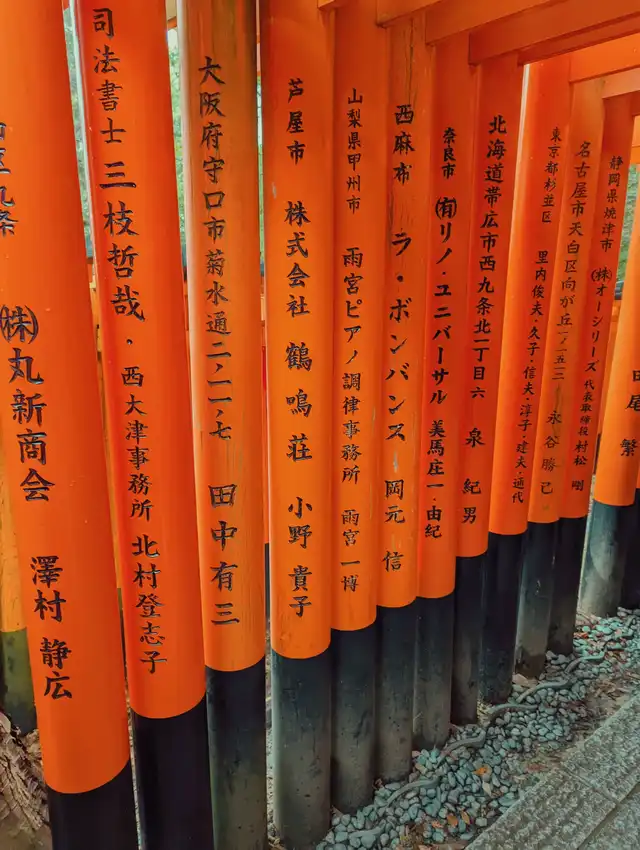 九条 ㈱丸新商会 澤村 静広
司法書士 三枝哲哉・西大津事務所 北村登志子
大阪府守口市菊水通二ノ一一ノ七 田中有三
芦屋市 株式会社 鶴鳴荘 小野貴子
山梨県甲州市 雨宮ピアノ調律事務所 雨宮一博
西麻布 ラ・ボンバンス 岡元 信
奈良市 ㈲リノ・ユニバーサル 美馬庄一・由紀
北海道帯広市西九条北一丁目六 泉 紀男
東京都杉並区 里内俊夫・久子・信夫・淳子・建夫・通代
名古屋市天白区向が丘 永谷勝己
静岡県焼津市 ㈱オーシリーズ 代表取締役 村松 剛
繁